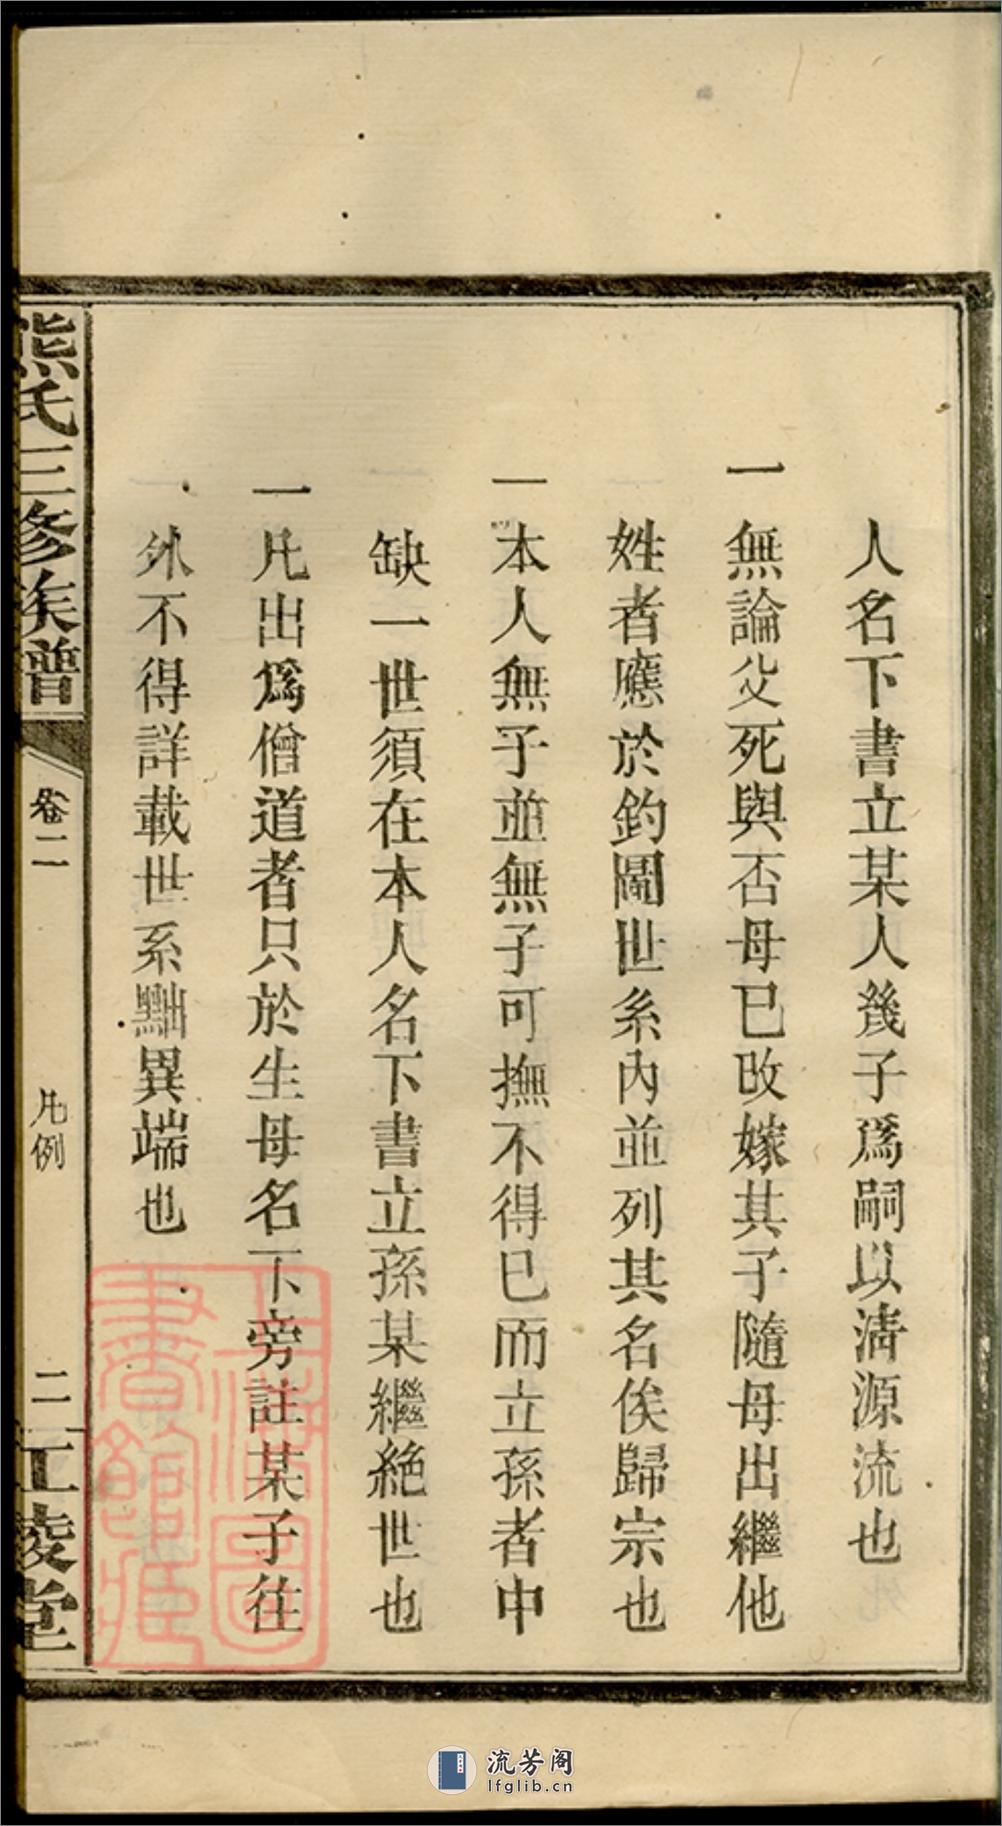 人名下書立某人幾子爲嗣以淸源流也
一無論父死與否母已改嫁其子隨母出繼他
姓者應於釣圖世系內並列其名俟歸宗也
一本人無子並無子可撫不得已而立孫者中
缺一世須在本人名下書立孫某繼絕世也
一凡出爲僧道者只於生母名下旁註某子往
外不得詳載世系黜異端也
熊氏三修族譜
卷二
凡例
二
江陵堂
上海圖
書館藏
流芳阁
lfglib.cn